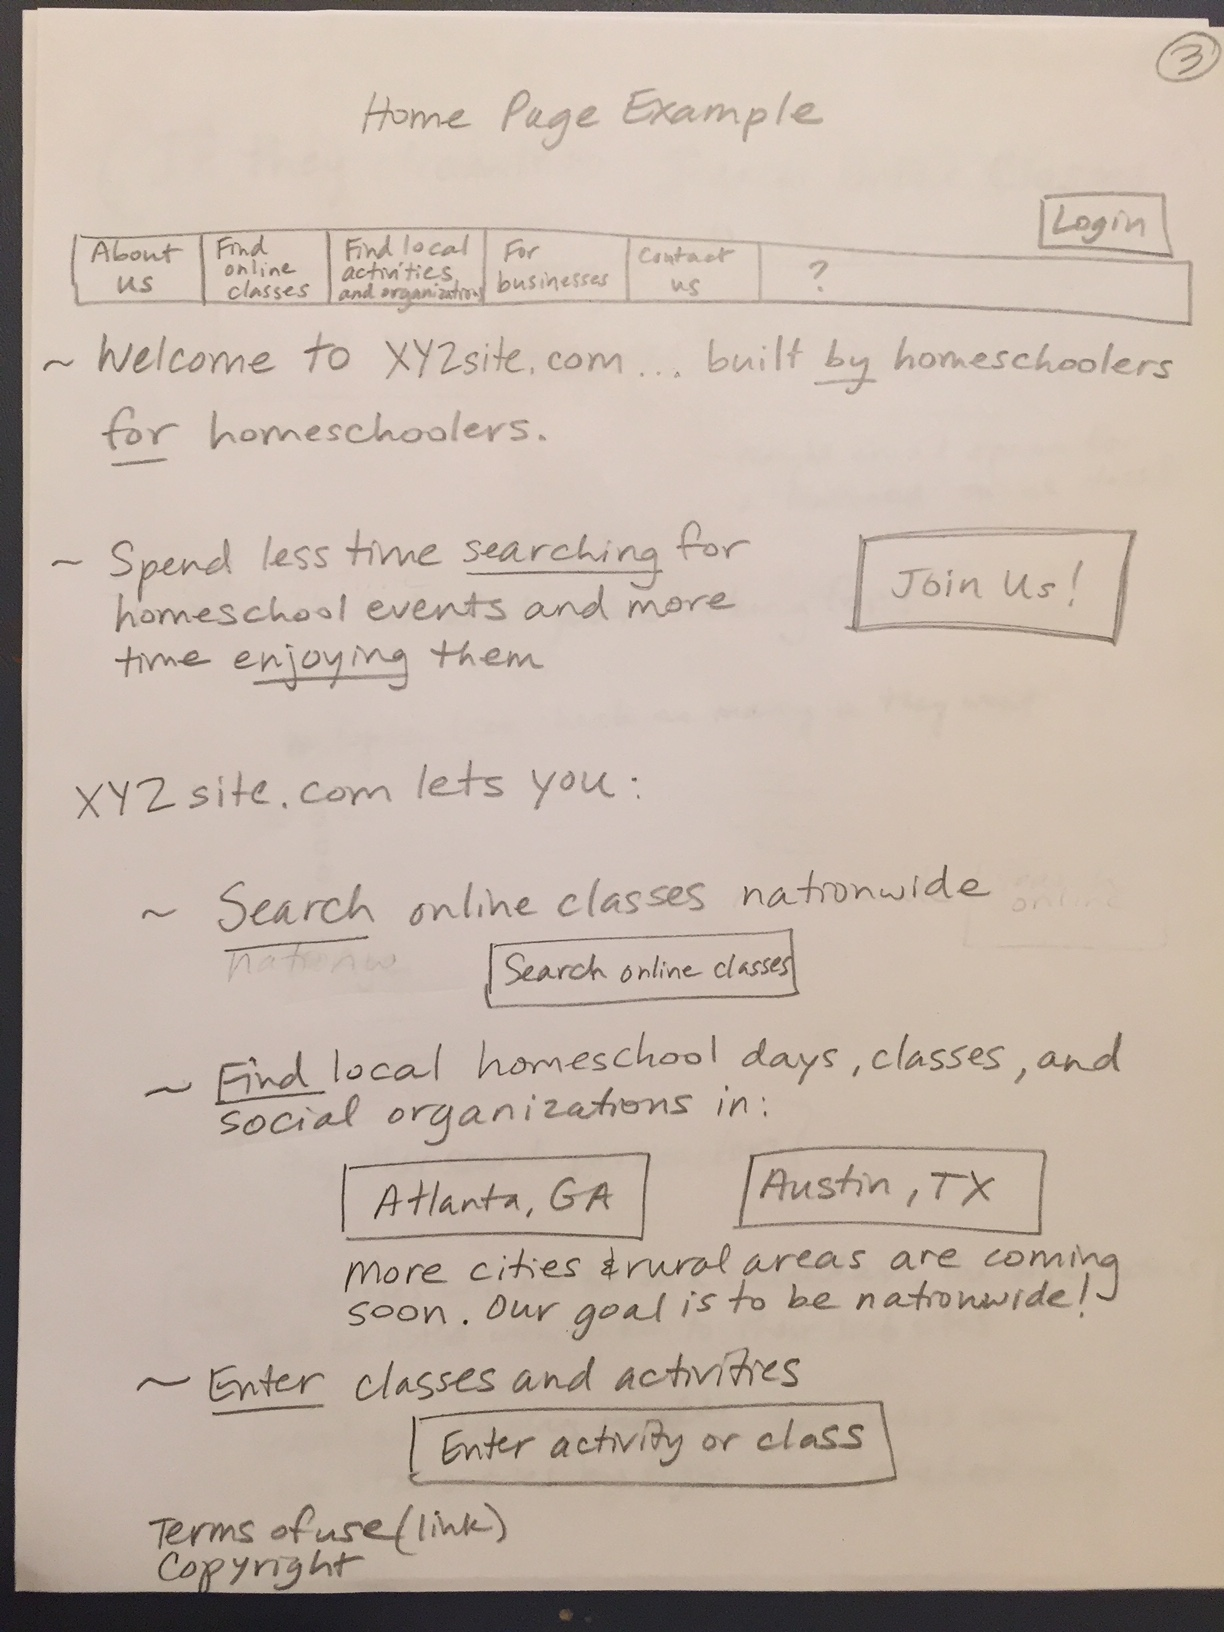 3
Home Page Example
Login
About us
Find online classes
Find local activities and organizations
For businesses
Contact us
?
~ Welcome to XYZsite.com... built by homeschoolers
for homeschoolers.
~ Spend less time searching for
homeschool events and more
time enjoying them
Join Us!
XYZsite.com lets you:
~ Search online classes nationwide
nationw
Search online classes
~ Find local homeschool days, classes, and
social organizations in:
Atlanta, GA
Austin, TX
More cities & rural areas are coming
soon. Our goal is to be nationwide!
~ Enter classes and activities
Enter activity or class
Terms of use (link)
Copyright